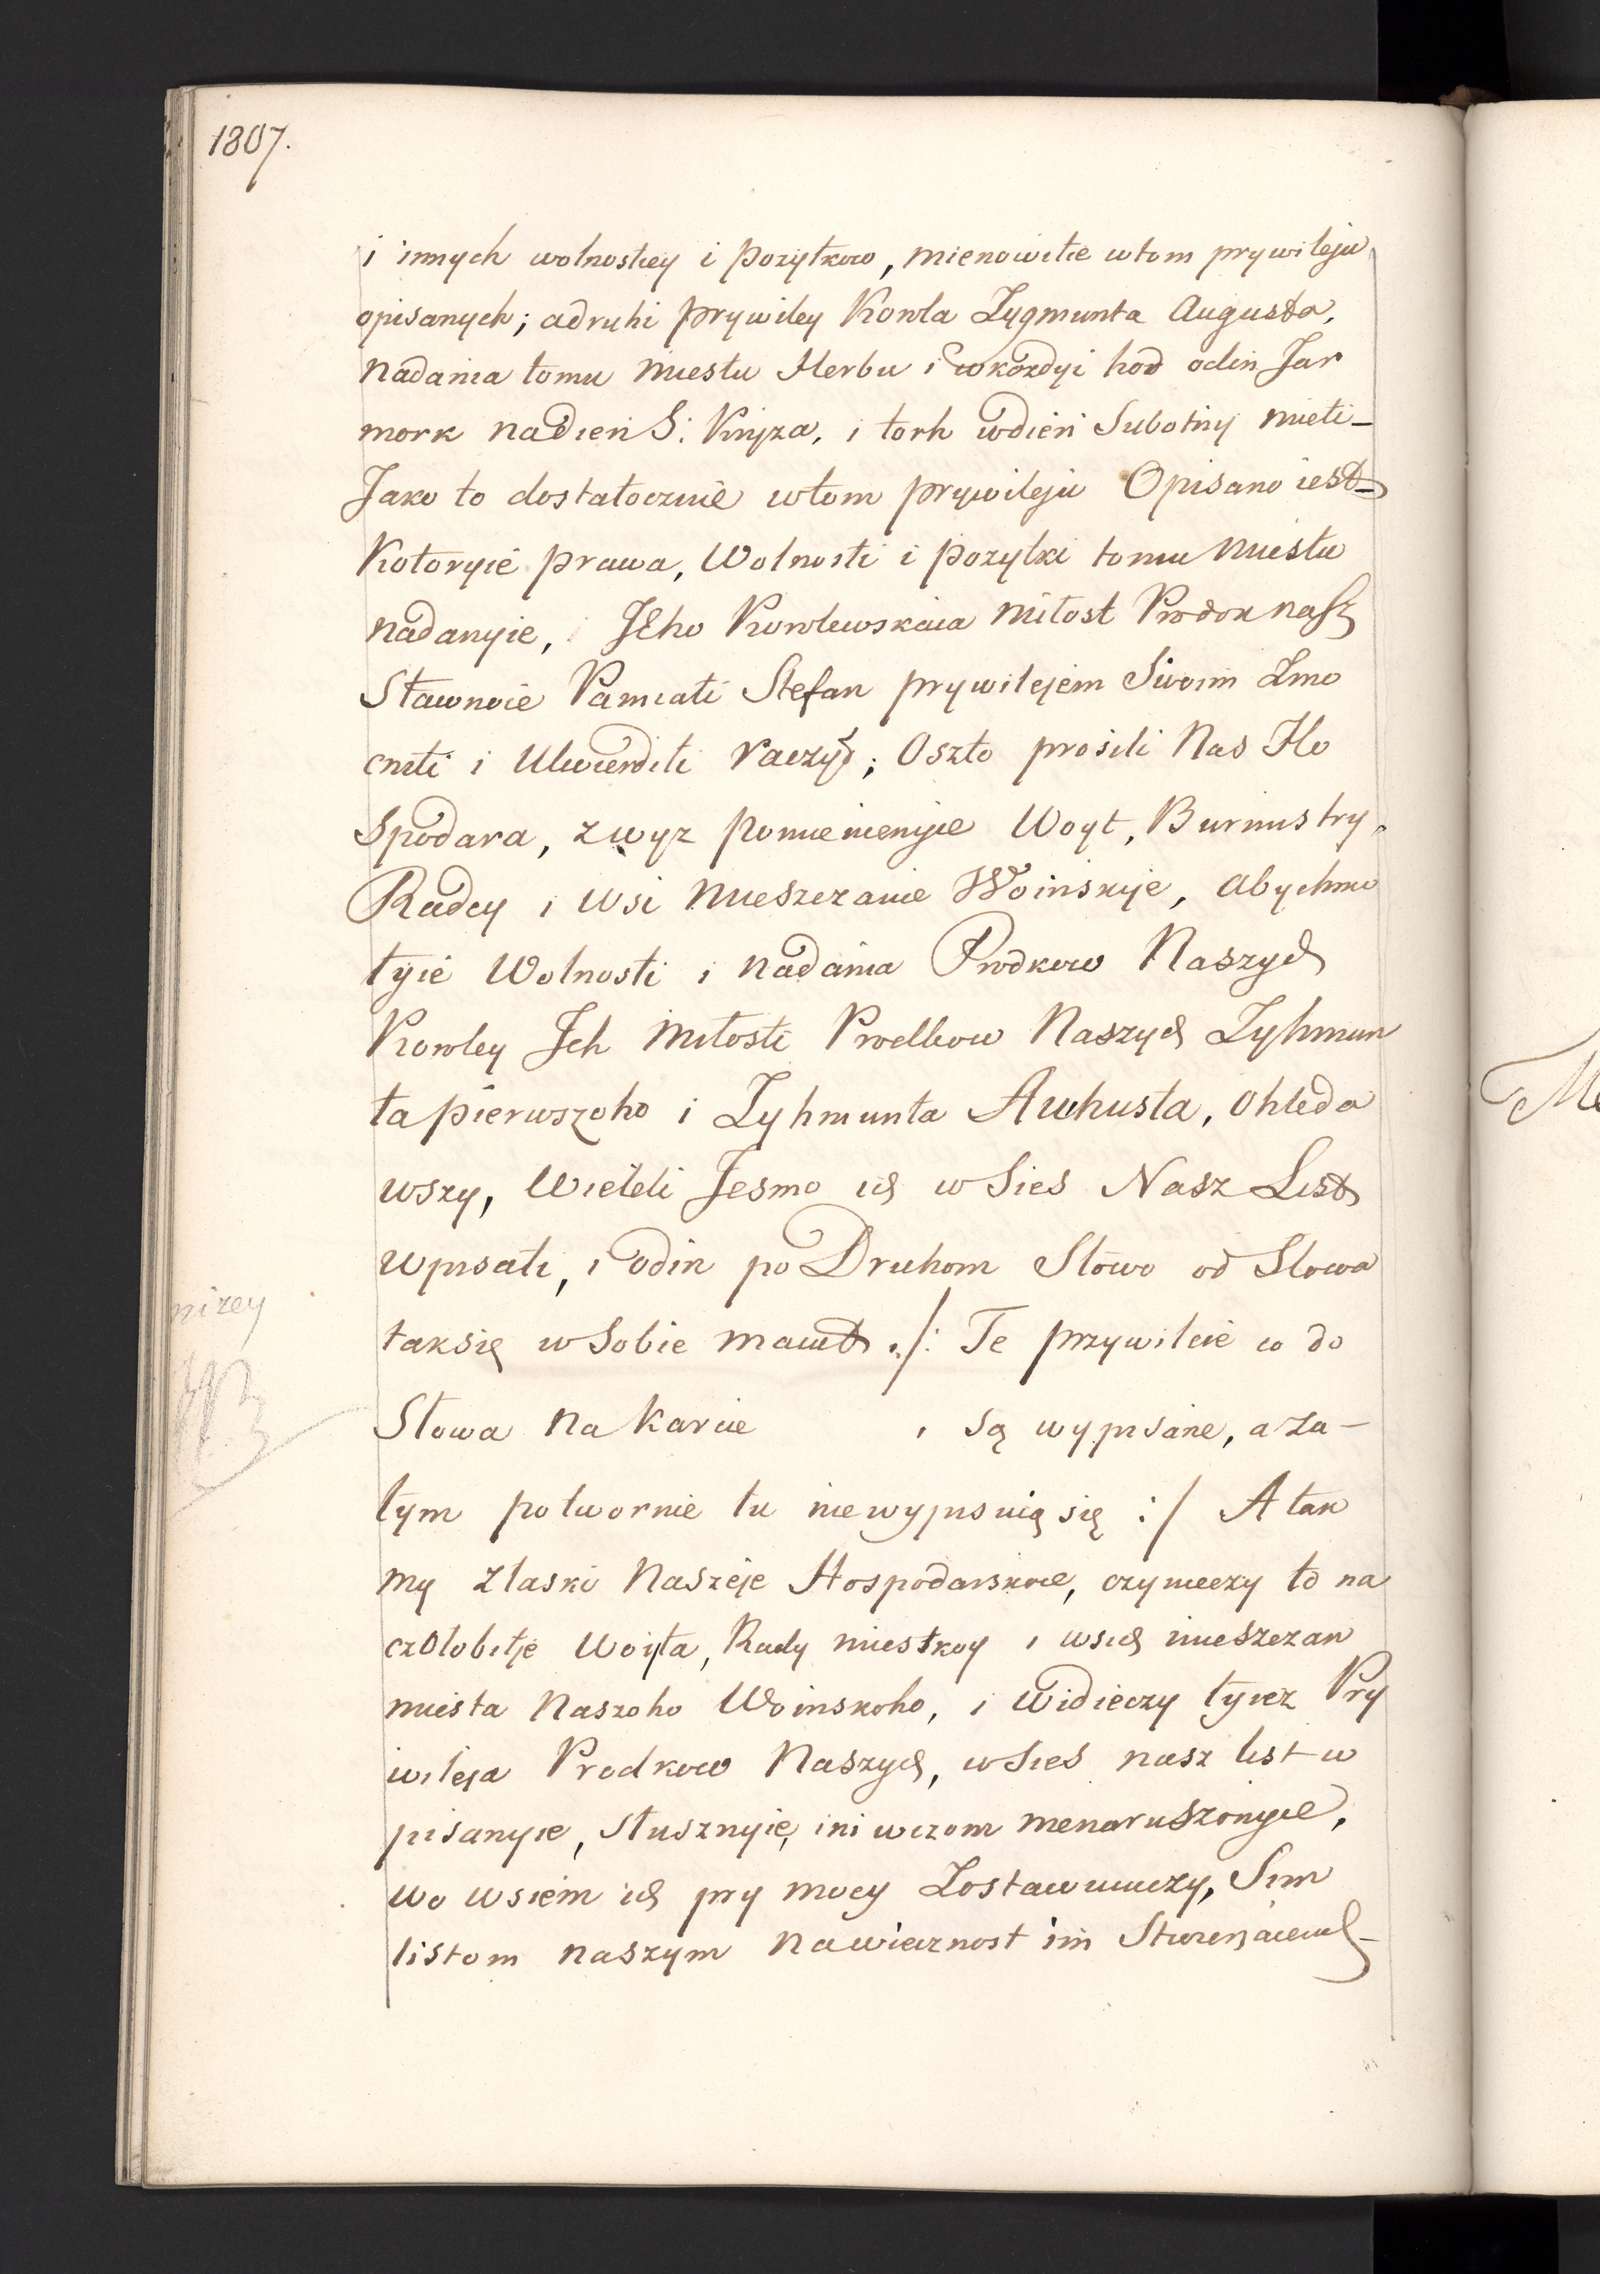 1807.
i innych wolnostiey i pozytkow, mienowitie wtom prywileju
opisanych; adruhi prywiley Korola Zygmunta Augusta,
nadania tomu miestu Herbu i wkozdyi hod odin Jar
mork nadien S: Knyza, i torh wdień Subotny mieti_
Jako to dostatocznie wtom prywileju Opisano iest_
Kotoryie prawa, Wolnosti i pozytki tomu miestu
nadanyie, Jeho Korolewskaia miłost Prodok nasz
Sławnoie Pamiati Stefan prywilejem Swoim Zmo
cniti i Utwierditi raczył; Oszto prosili Nas Ho
spodara, zwyz pomienienyie Woyt, Burmistry,
Radcy i wsi mieszczanie Woinskije, abychmo
tyie Wolnosti i nadania Prodkow Naszych
Koroley Ich Miłosti Prodkow Naszych Zyhmun
ta pierwszoho i Zyhmunta Awhusta, ohleda
wszy, Wieleli Jesmo ich w Sies Nasz List
wpisati, i odin po Druhom Słowo od Słowa
taksię w Sobie maiut ./: Te przywileie co do
Słowa na karcie , są wypisane, a za-
tym potwornie tu niewypisuią się :/ A tak
my złaski Naszeje Hospodarskoie, czynieczy to na
czołobitje Woita, Rady miestkoy i wsich mieszczan
miesta Naszoho Woinskoho, i Widieczy tyiez Pry
wileja Prodkow Naszych, w Sies nasz list w
pisanyie, słusznyie, ini wczom nienaruszonyie,
wo wsiem ich pry mocy Zostawuiuczy, Sim
listom naszym nawiecznost im
nizey